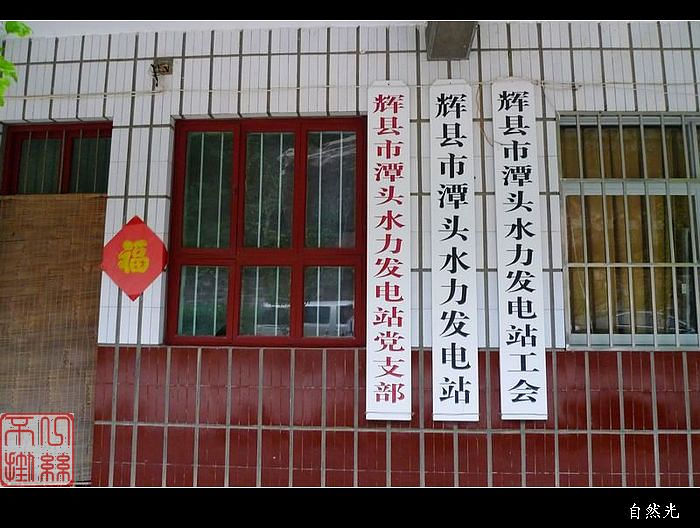 辉县市潭头水力发电站党支部
辉县市潭头水力发电站
辉县市潭头水力发电站工会
福
自然光